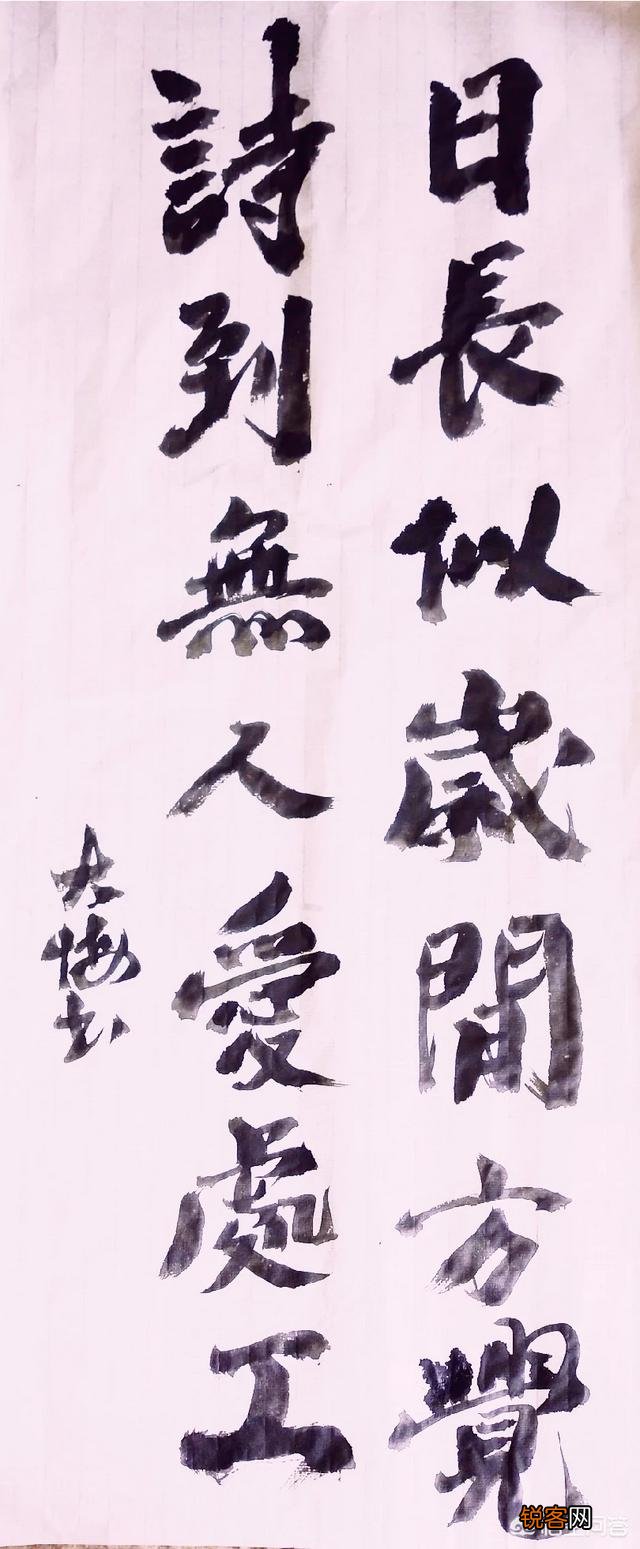 日長似歲閒方覺
詩到無人愛處工
大悔书
锐客网